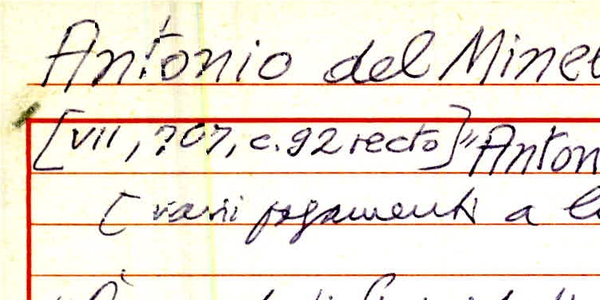 Antonio del Mine
[VII, 707, c. 92 recto] "Anton
[vari pagamenti a l